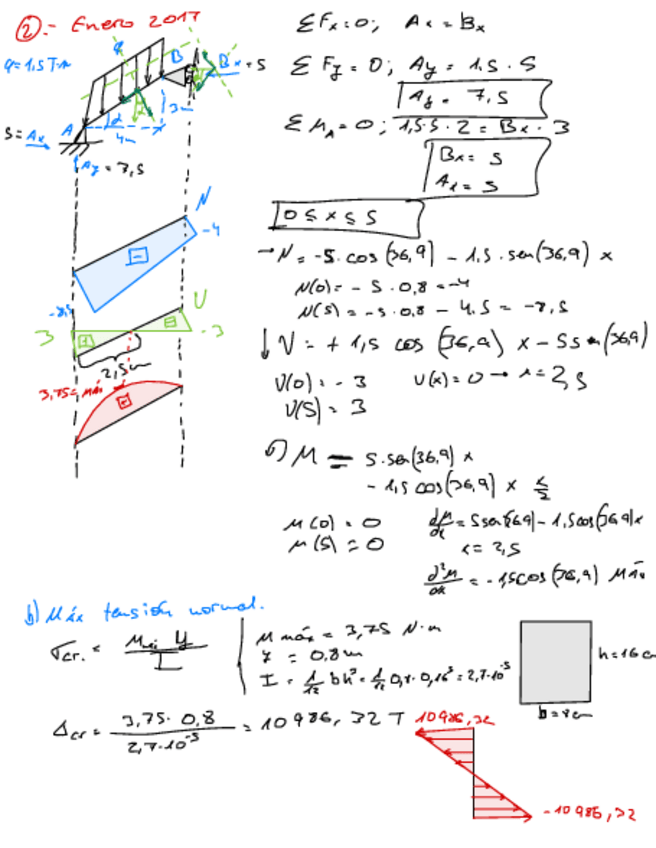 2.- Enero 2017
ΣFx=0; Ax = Bx
q=1,5 T·m
q
B
Bx = 5
Σ Fy = 0; Ay = 1,5 · 5
Ay = 7,5
5 = Ax
A
α
4m
3m
Ay = 7,5
Σ MA = 0; 1,5·5·2 = Bx · 3
Bx = 5
Ax = 5
0 ≤ x ≤ 5
N
-4
-8,5
→ N = -5·cos (36,9) - 1,5·sen(36,9) x
N(0) = - 5·0,8 = -4
N(5) = -5·0,8 - 4,5 = -8,5
V
3
-3
2,5m
↓ V = + 1,5 cos (36,9) x - 5sen(36,9)
V(0) = - 3
V(x) = 0 → x = 2,5
V(5) = 3
3,75 = máx
M = 5·sen(36,9) x
- 1,5 cos(36,9) x x/2
M(0) = 0
dM/dx = 5sen(36,9) - 1,5cos(36,9)x
M(5) = 0
x = 2,5
d²M/dx = -1,5cos(36,9) Máx
b) Máx tensión normal.
M máx = 3,75 N·m
y = 0,8m
I = 1/12 bh³ = 1/12 0,8·0,16³ = 2,7·10⁻⁵
h = 16 c
b = 8cm
= 3,75 · 0,8 / 2,7·10⁻⁵ = 10986,32 T
10986,32
-10986,32